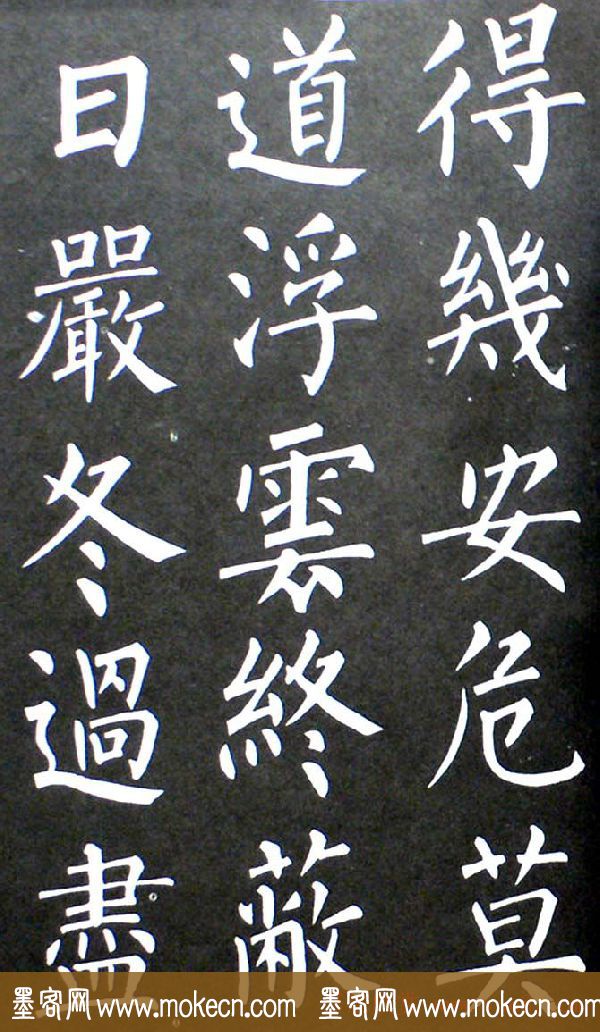 得幾安危莫
道浮雲終蔽
日嚴冬過盡
墨客网 www.mokecn.com 墨客网 www.mokecn.com